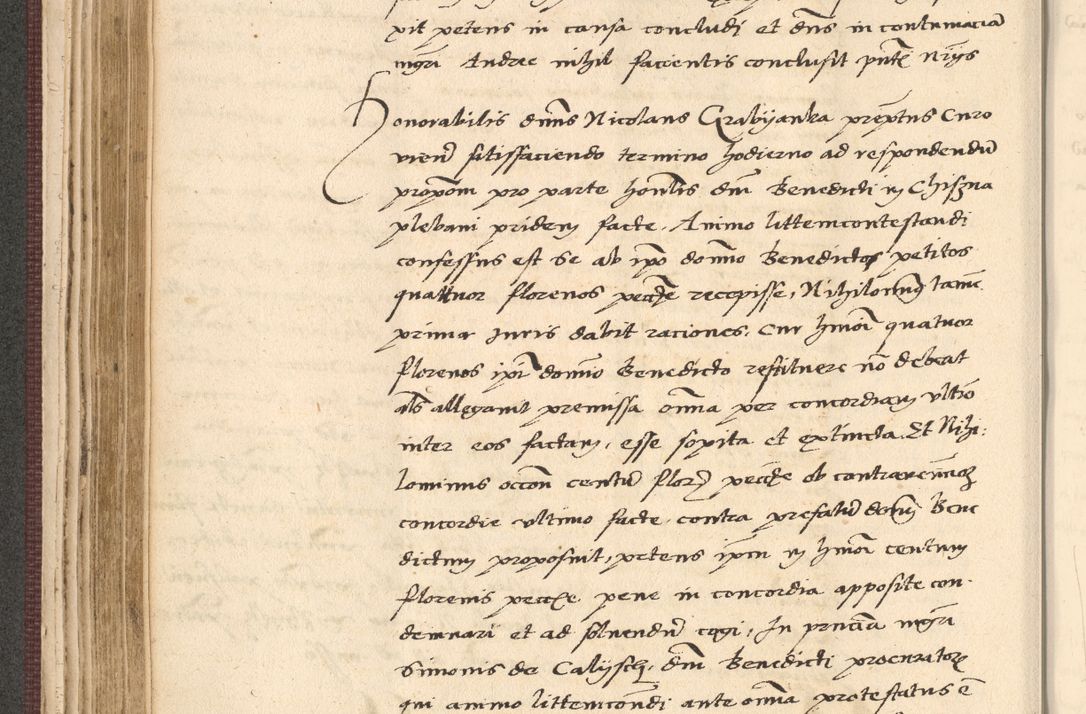 pit petens in causa concludj et dns in contumaciã
mgri Andree nihil facientis conclusit pntẽ nrijs
Honorabilis dnns Nicolaus Grabyanka preptus Curo
vienñ sitisfaciendo termino hodierno ad respondendũ
propom pro parte honlis dni Benedicti in Chiszna
plebani pridem facte, Animo littemcontestandi
confessus est se ab ipo domno Benedictos petitos
quattuor florenos pecctie recepisse, Nihilomng tamẽ
prima Juris dabit raciones, Cur hmoi quatuor
florenos ipi domno Benedicto restituere nõ debeat
als allegauit premissa omia per concordiam vltio
inter eos factam, esse sopita et extincta Et Nihi,
lominus occon centũ flor pecctie ob contrauencoẽ
concordie vltimo facte, contra prefatũ domng Bene
dictum proposuit, petens ipm in hmoi centum
florenis peccie pene in concordia apposite con,
demnari et ad soluendũ cogi, In pncia mgri
Simonis de Calysch, dni Benedicti procurator
qui animo littemcondi ante omia protestatus ẽ